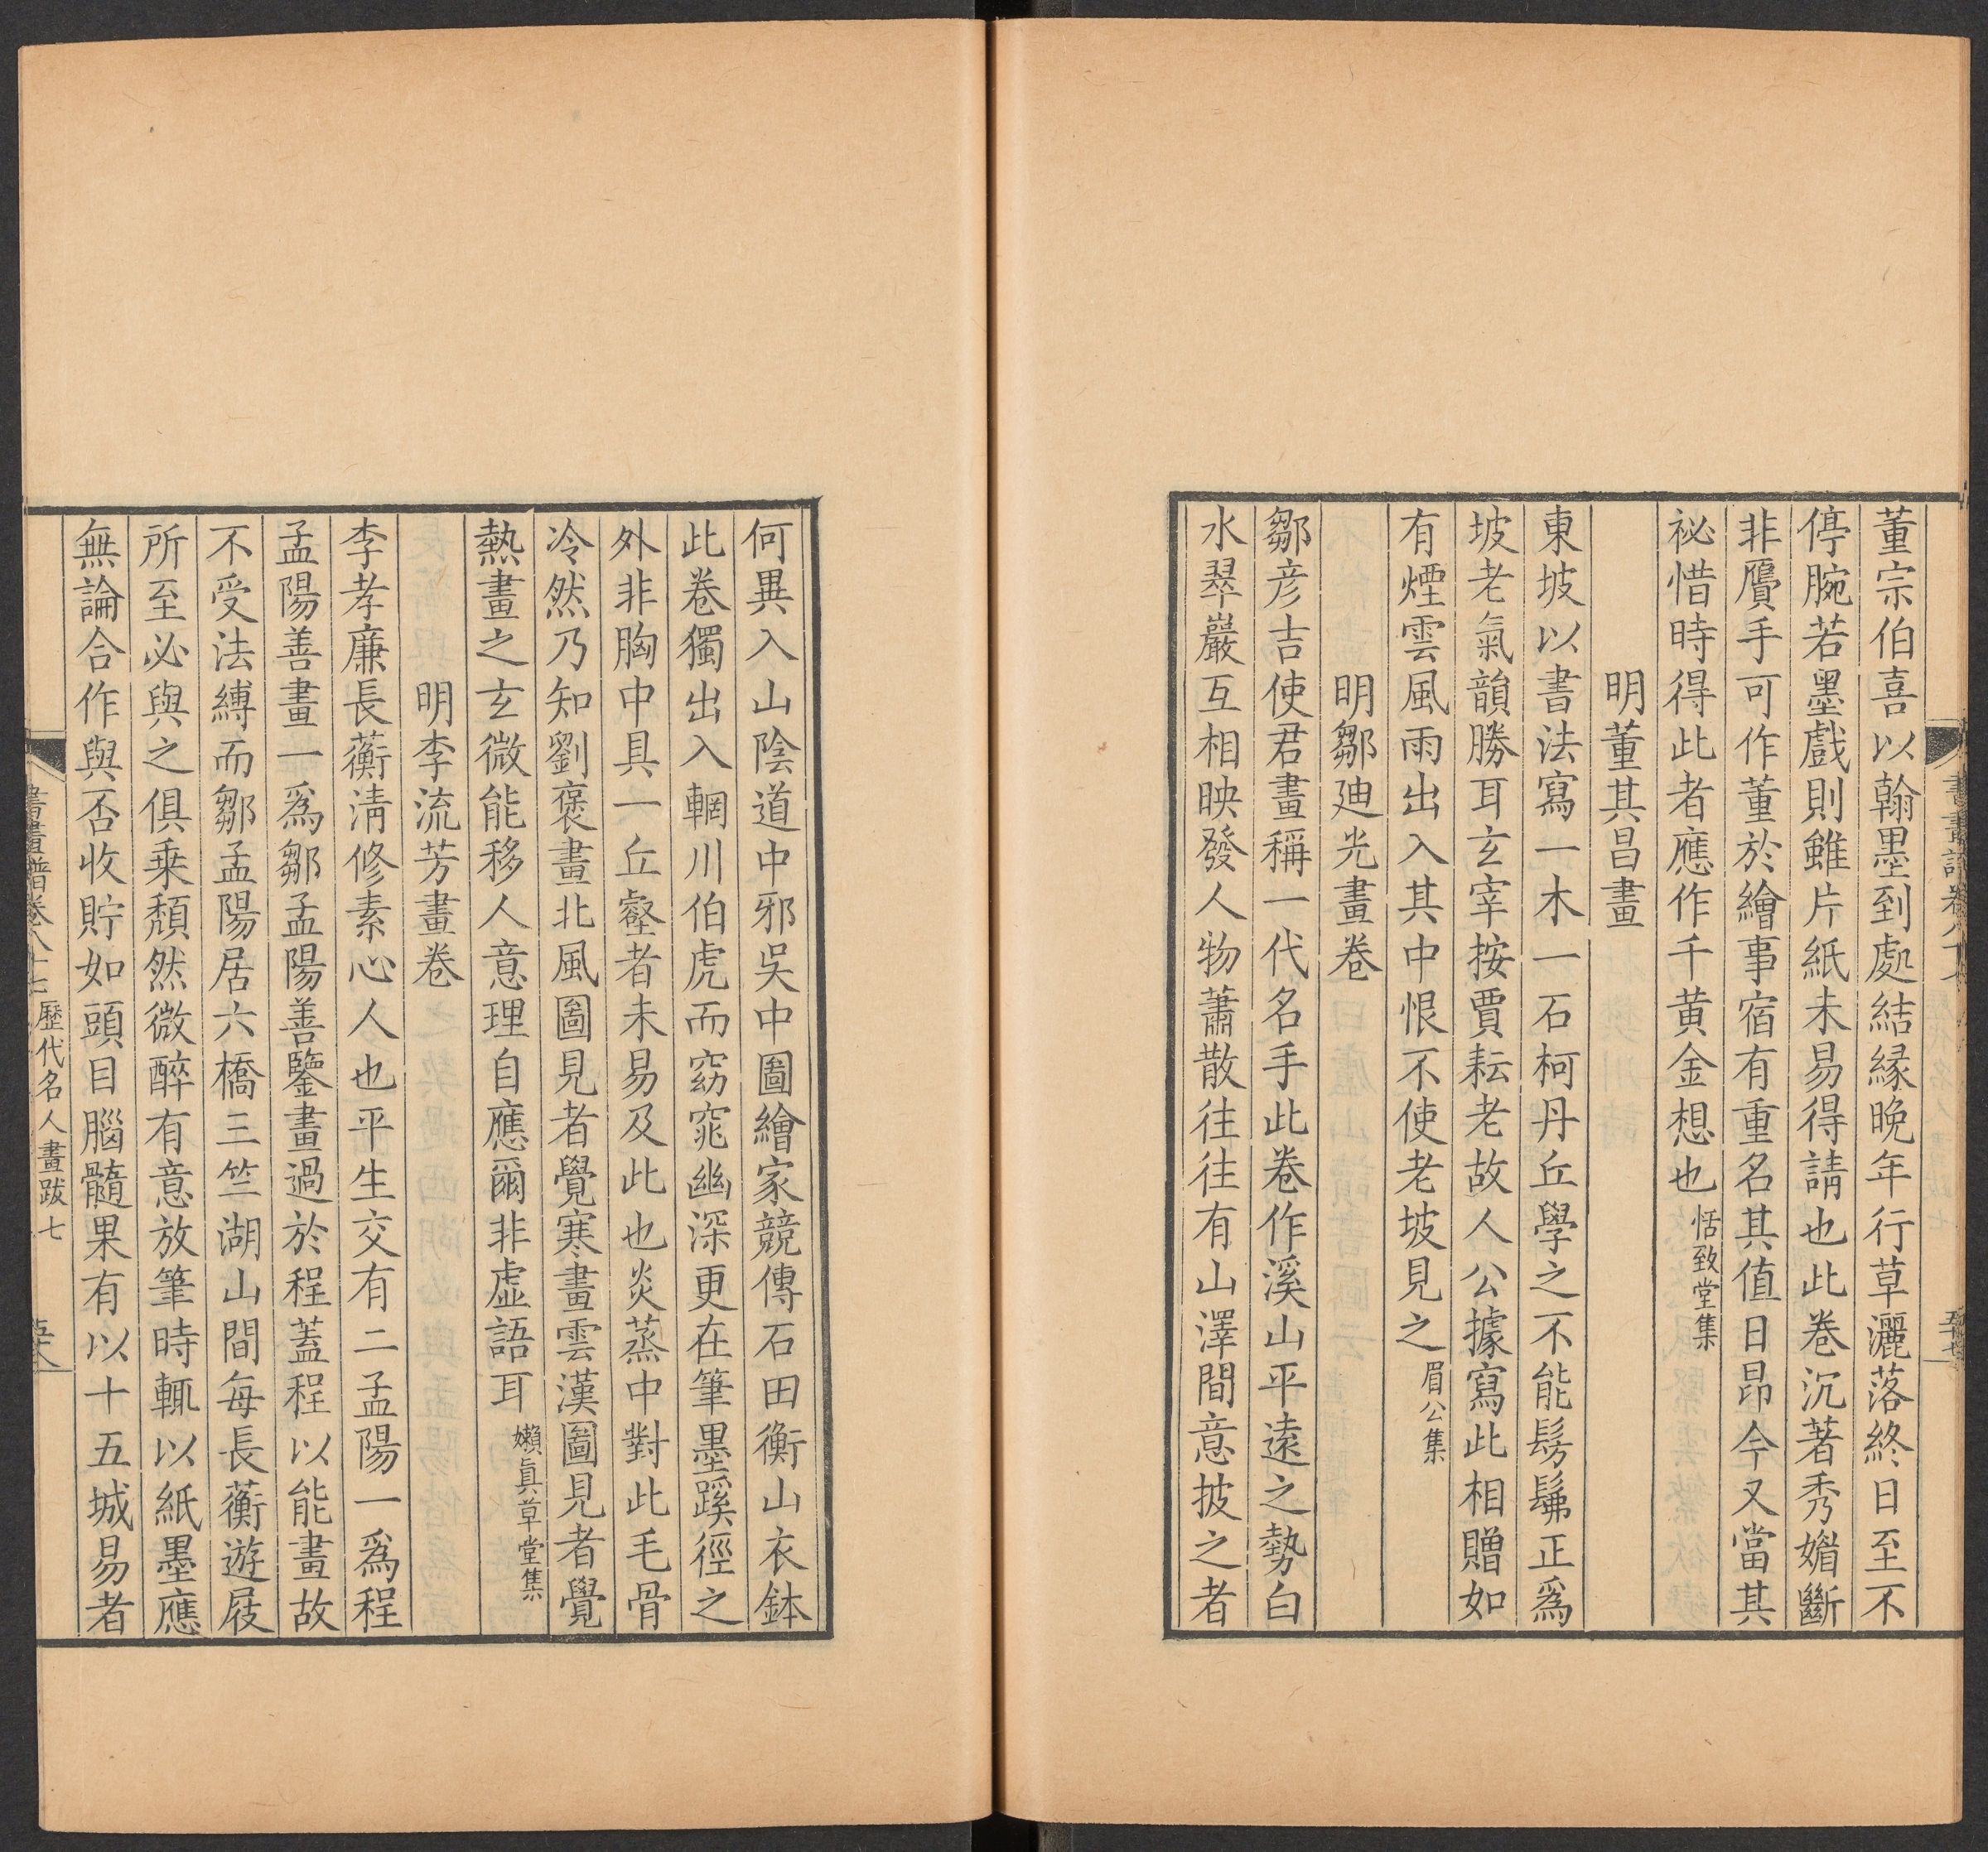 董宗伯喜以翰墨到處結縁晚年行草灑落終日至不
停腕若墨戲則雖片紙未易得請也此卷沉著秀媚斷
非贋手可作董於繪事宿有重名其值日昂今又當其
祕惜時得此者應作千黃金想也恬致堂集
明董其昌畫
東坡以書法寫一木一石柯丹丘學之不能髣髴正爲
坡老氣韻勝耳玄宰按賈耘老故人公據寫此相贈如
有煙雲風雨出入其中恨不使老坡見之眉公集
明鄒廸光畫卷
鄒彦吉使君畫稱一代名手此卷作溪山平遠之勢白
水翠巖互相映發人物蕭散往往有山澤間意披之者
何異入山陰道中邪吳中圖繪家競傳石田衡山衣鉢
此卷獨出入輞川伯虎而窈窕幽深更在筆墨蹊徑之
外非胸中具一丘壑者未易及此也炎蒸中對此毛骨
冷然乃知劉褒畫北風圖見者覺寒畫雲漢圖見者覺
熱畫之玄微能移人意理自應爾非虛語耳嬾眞草堂集
明李流芳畫卷
李孝廉長蘅淸修素心人也平生交有二孟陽一爲程
孟陽善畫一爲鄒孟陽善鑒畫過於程蓋程以能畫故
不受法縛而鄒孟陽居六橋三竺湖山間每長蘅遊屐
所至必與之俱乗頹然微醉有意放筆時輒以紙墨應
無論合作與否收貯如頭目腦髓果有以十五城易者
書畫譜卷八十七 歷代名人畫跋七